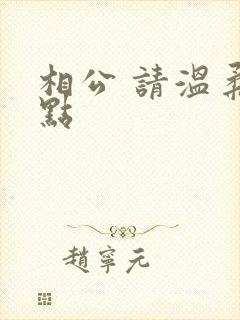 相公 請溫柔
點
趙寧元